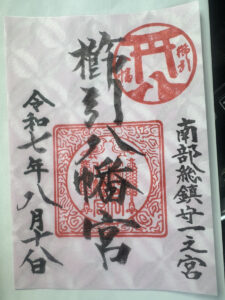 南部総鎮守一之宮
櫛引八幡宮
令和七年八月十八日
櫛引